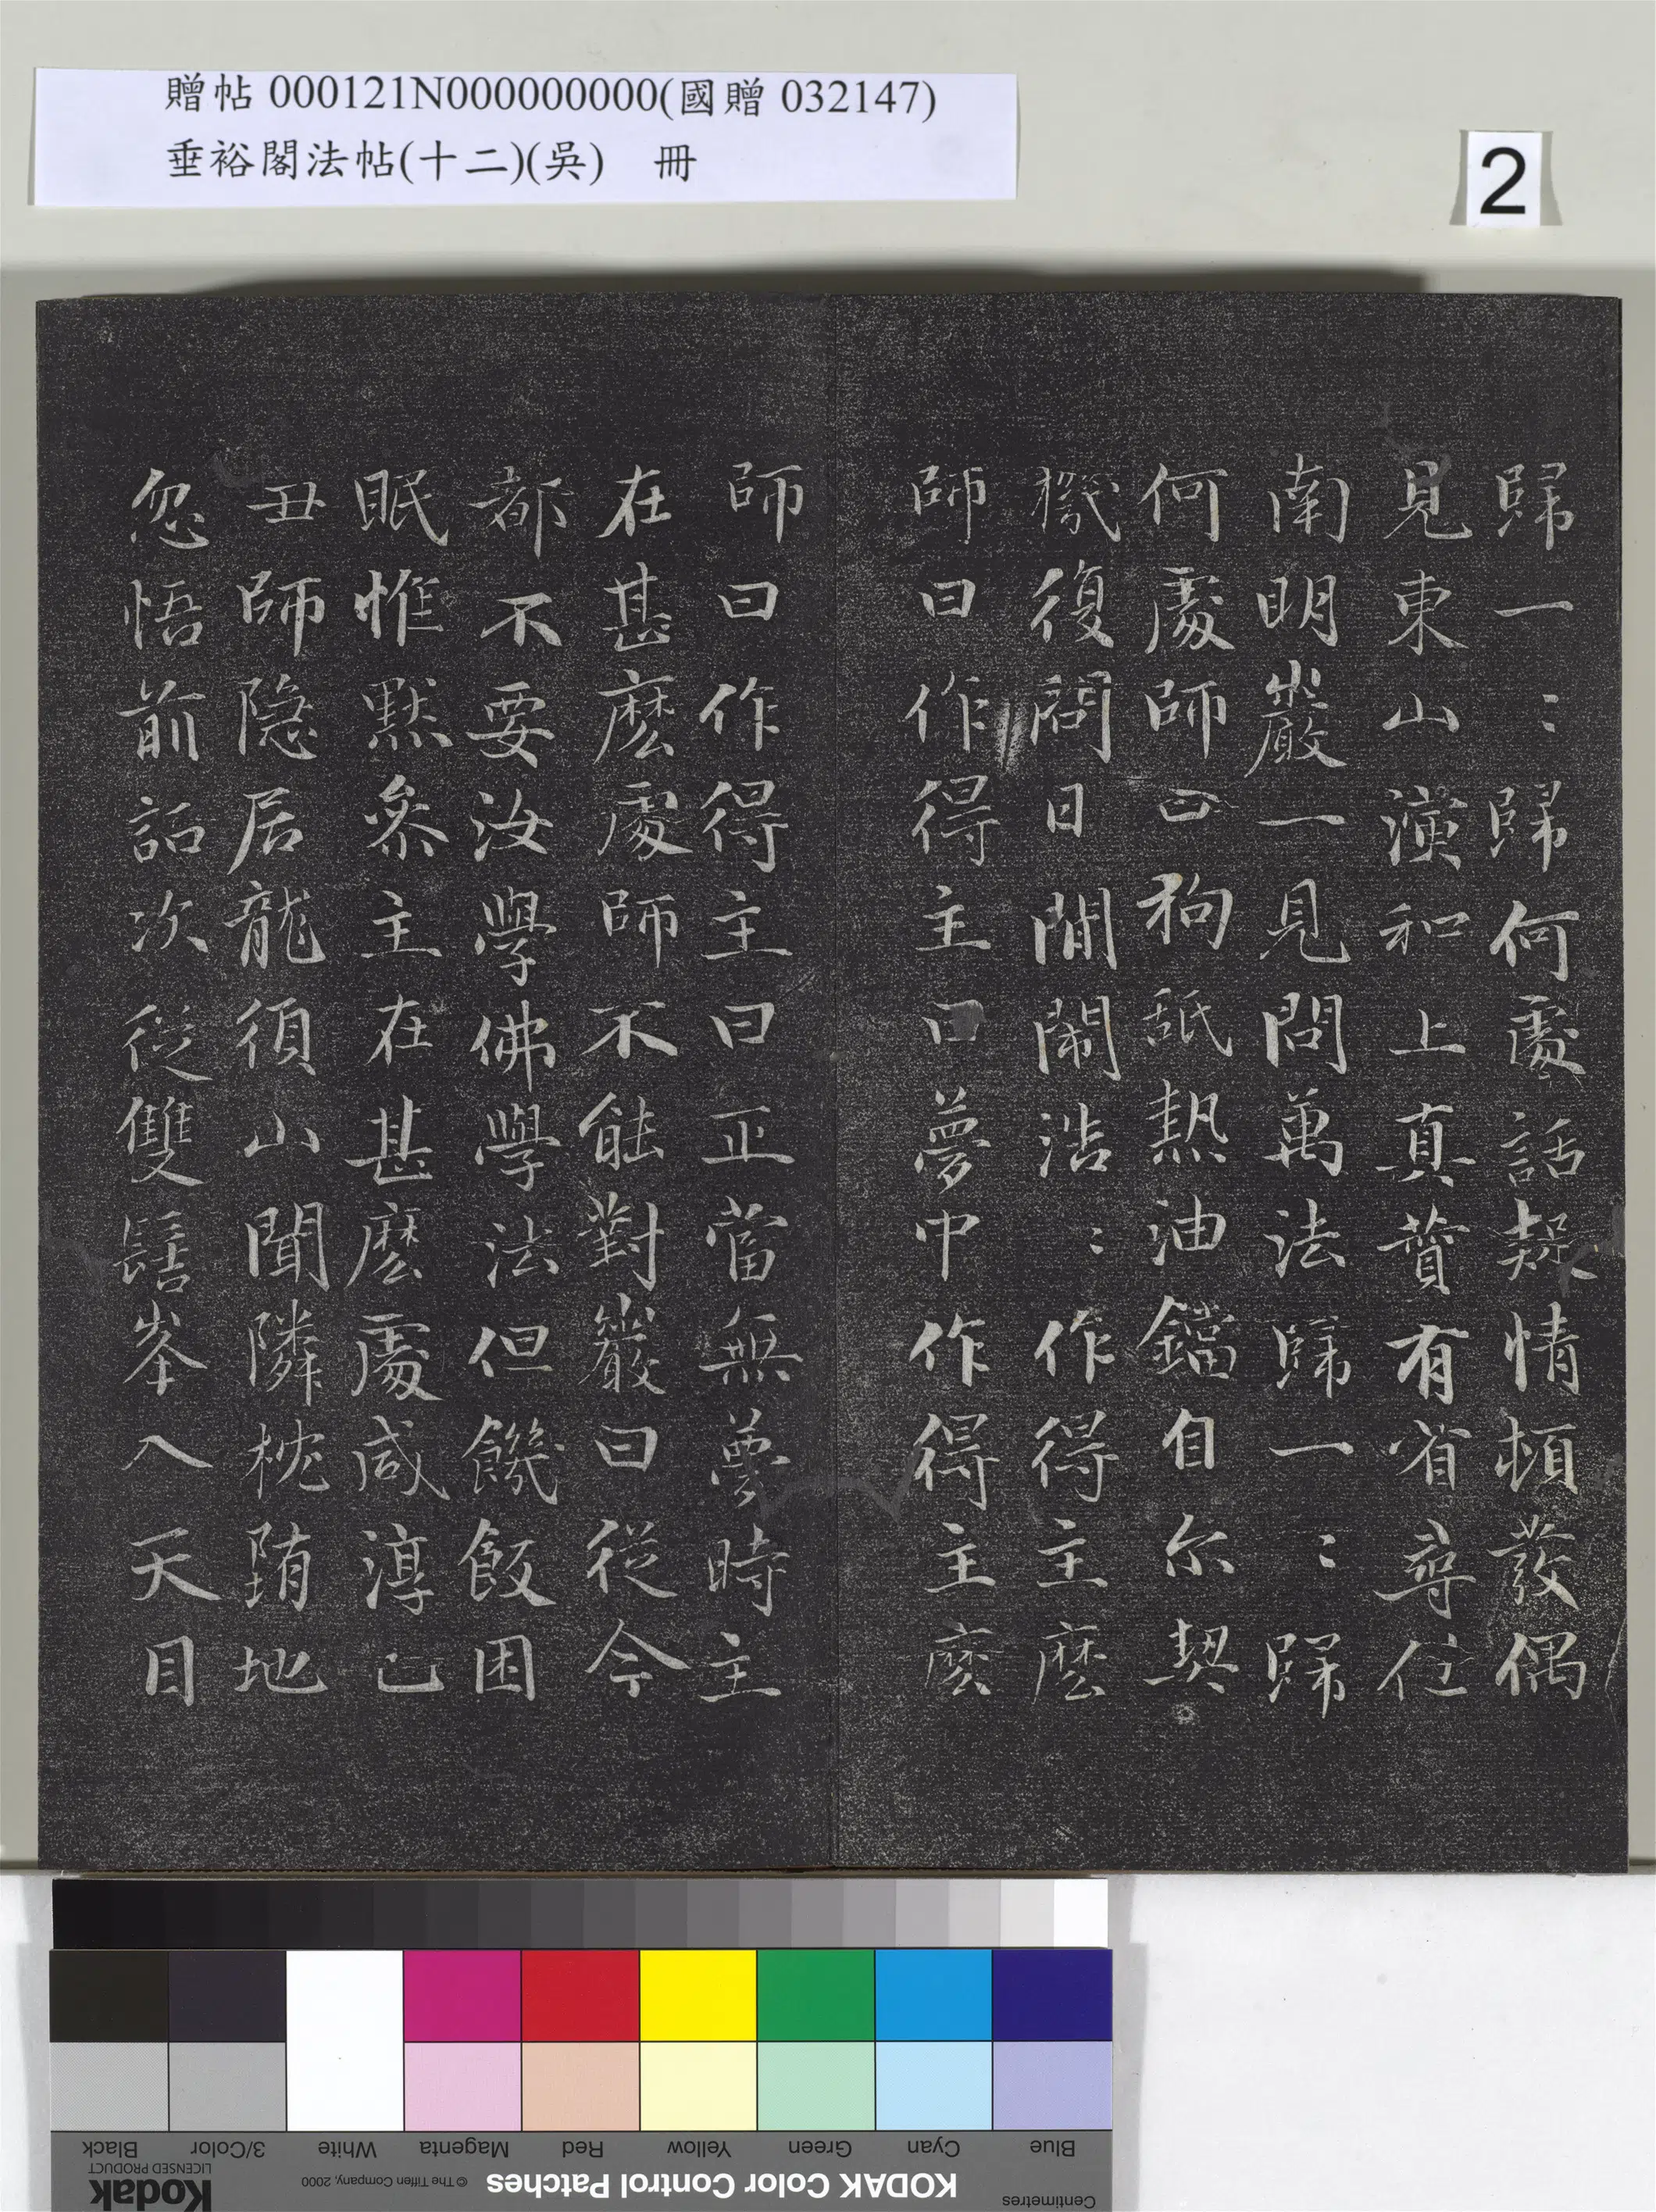 贈帖 000121N000000000(國贈 032147)
垂裕閣法帖(十二)(吳) 冊
2
歸一ː歸何處話疑情頓發偶
見東山演和上真賛有省尋住
南明巖一見問萬法歸一ː歸
何處師曰狗舐熱油鐺自尓契
機復問日間閙浩ː作得主麽
師曰作得主曰夢中作得主麽
師曰作得主曰正當無夢時主
在甚麽處師不能對巖曰從今
都不要汝學佛學法但饑飯困
眠惟默叅主在甚麽處咸淳已
丑師隐居龍須山聞隣枕堕地
忽悟前話次從雙髻峯入天目
Blue
Cyan
Green
Yellow
Red
Magenta
White
3/Color
Black
Centimetres
KODAK Color Control Patches
© The Tiffen Company, 2000
Kodak
LICENSED PRODUCT